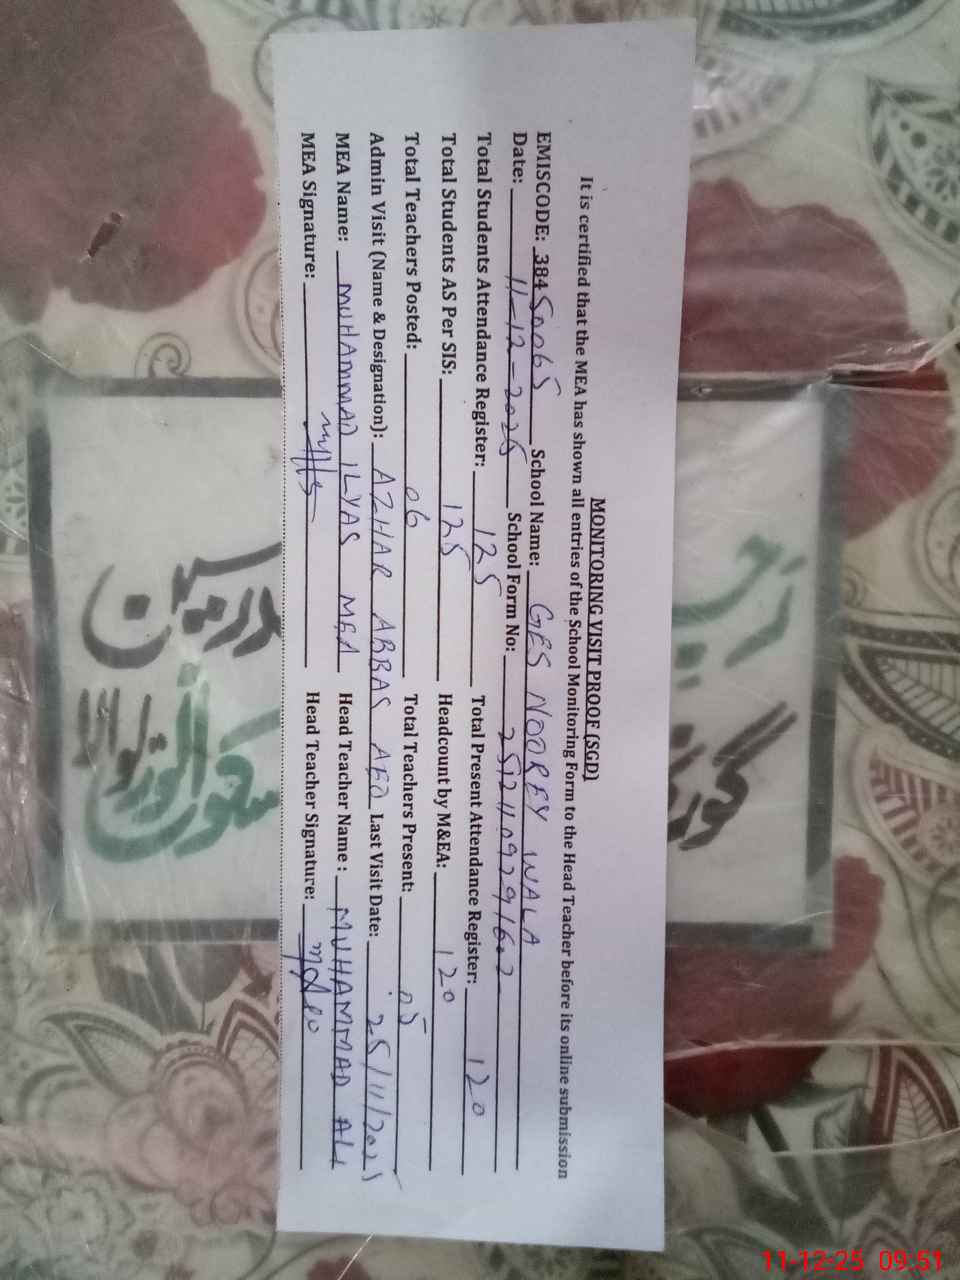 MONITORING VISIT PROOF (SGD)
It is certified that the MEA has shown all entries of the School Monitoring Form to the Head Teacher before its online submission
EMISCODE: 38450065 School Name: GES NOOREY WALA
Date: 11-12-2025 School Form No: 251211092991602
Total Students Attendance Register: 125 Total Present Attendance Register: 120
Total Students AS Per SIS: 125 Headcount by M&EA: 120
Total Teachers Posted: 06 Total Teachers Present: 05
Admin Visit (Name & Designation): AZHAR ABBAS AEO Last Visit Date: 25/11/2025
MEA Name: MUHAMMAD ILYAS MEA Head Teacher Name : MUHAMMAD ALI
MEA Signature: Head Teacher Signature:
11-12-25 09:51